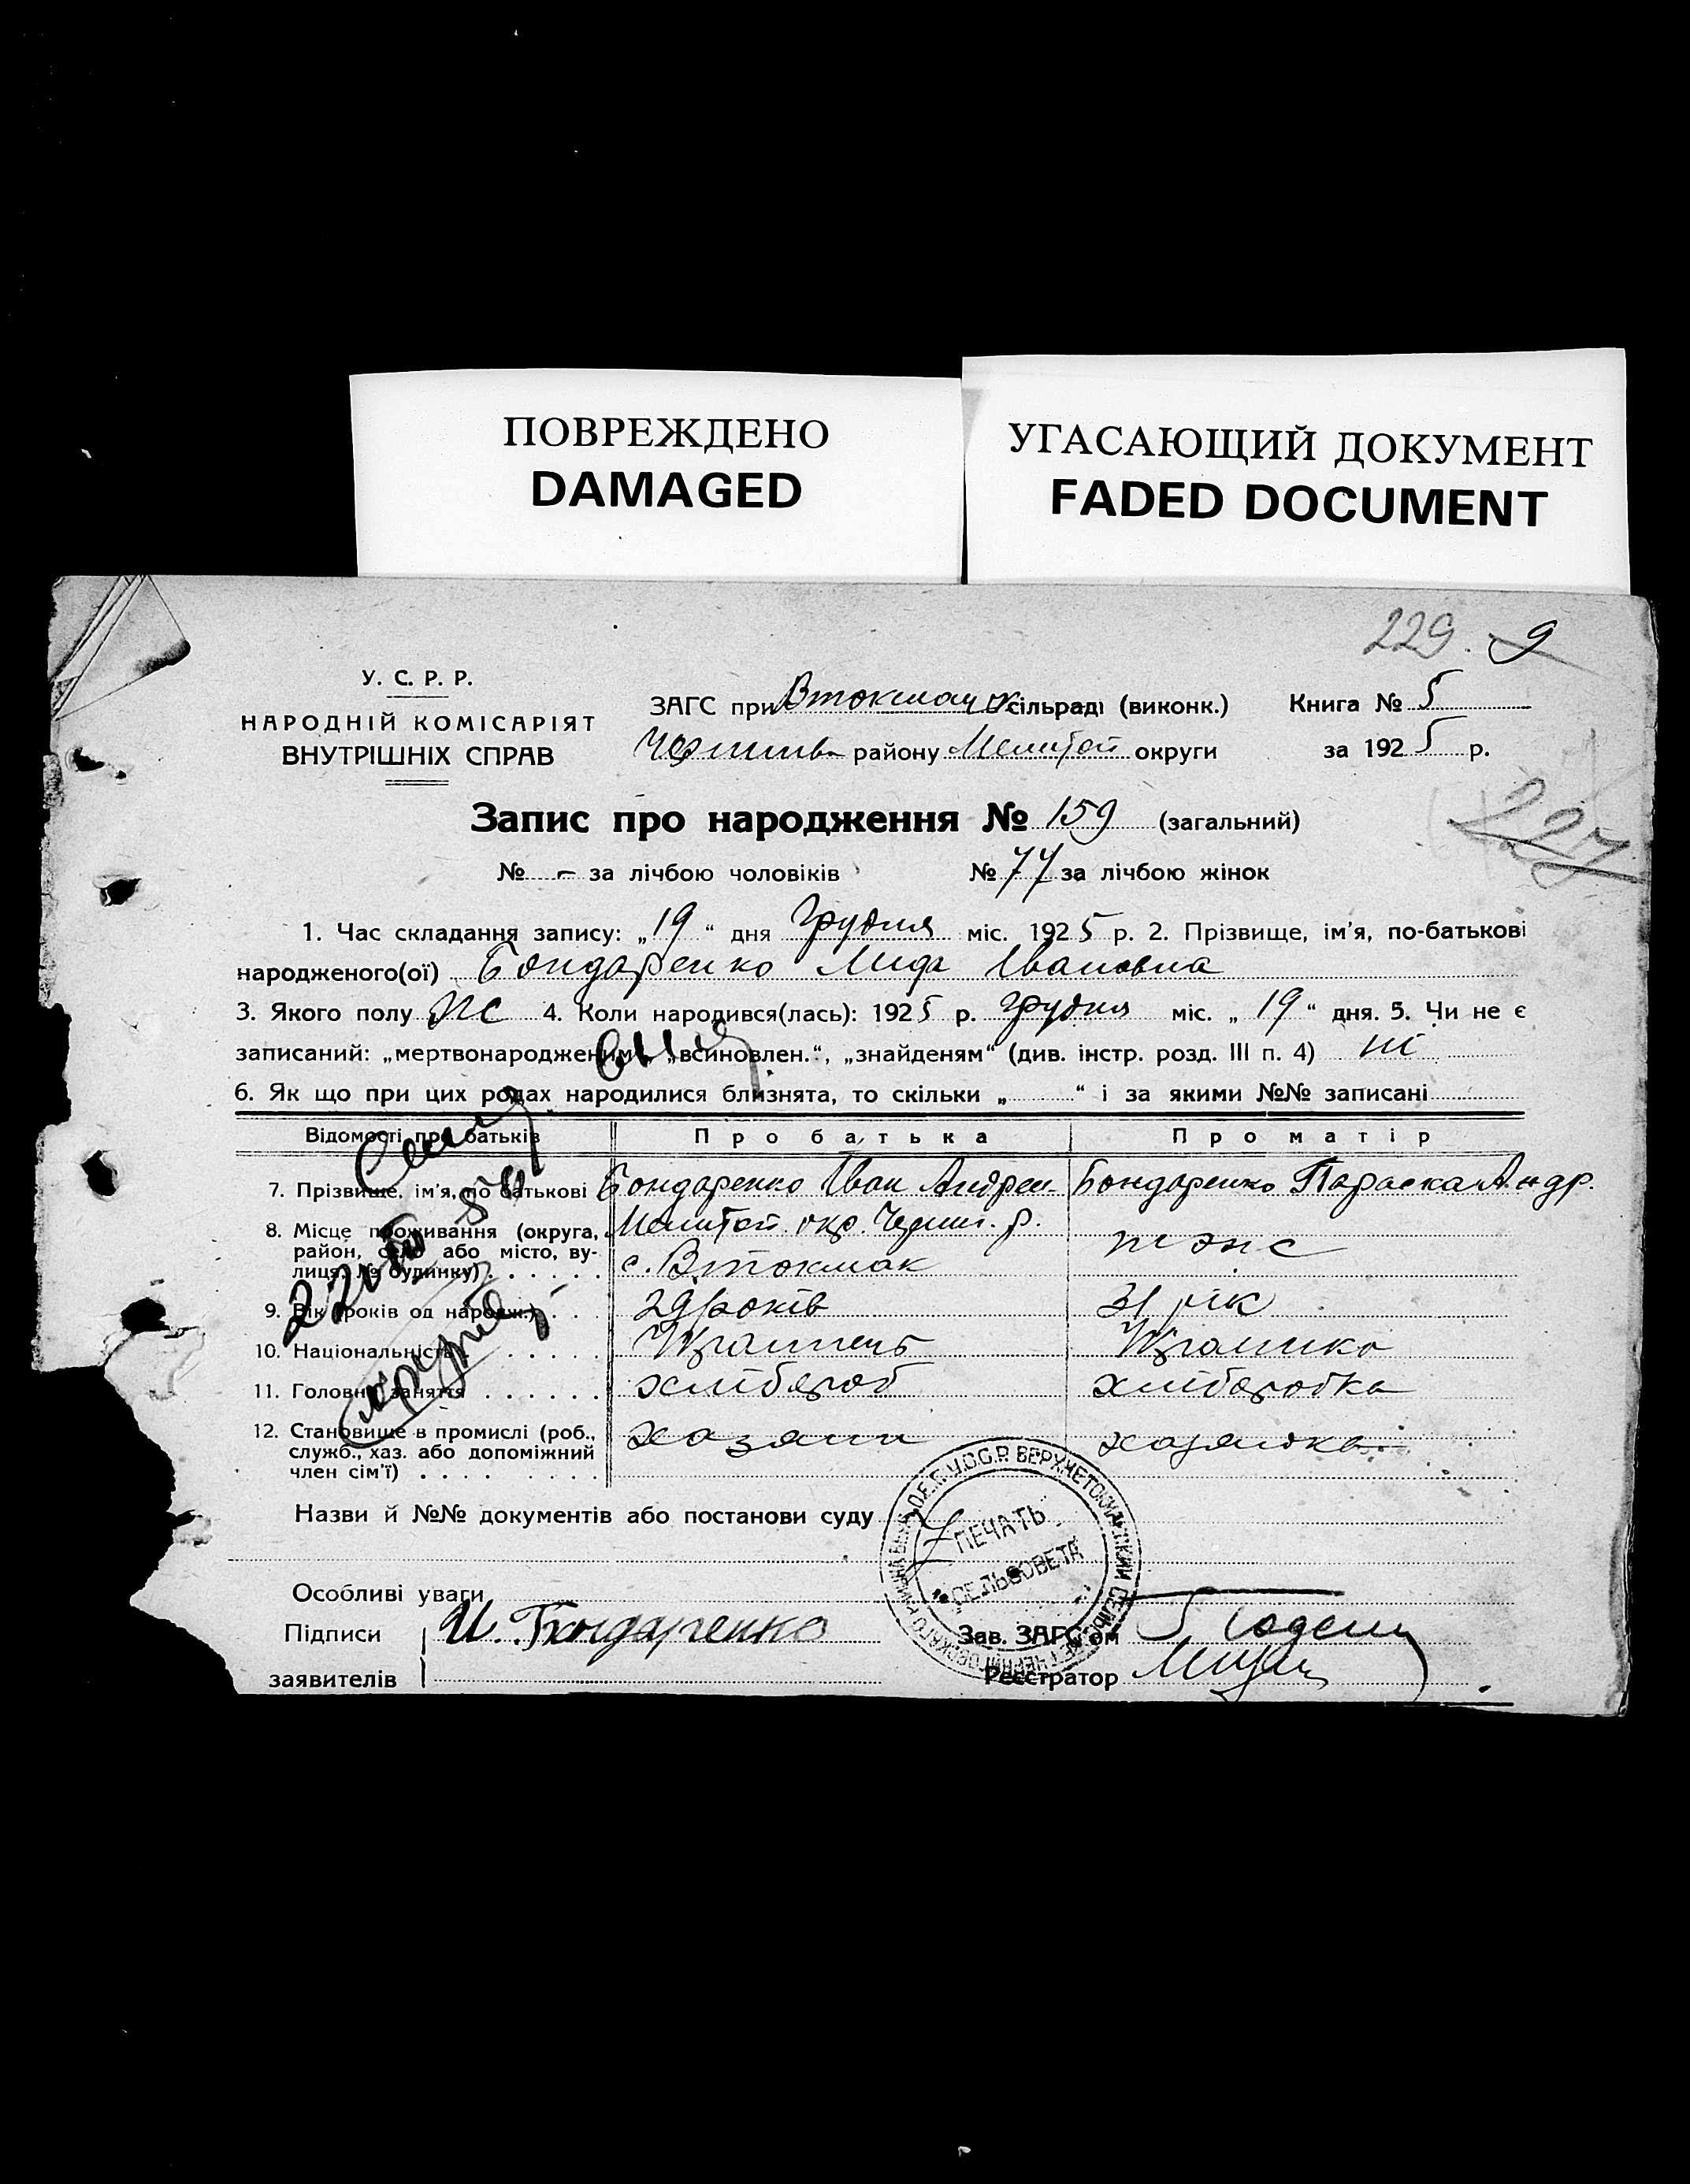 ПОВРЕЖДЕНО
DAMAGED
УГАСАЮЩИЙ ДОКУМЕНТ
FADED DOCUMENT
229. 9
У. С. Р. Р.
НАРОДНІЙ КОМІСАРІЯТ
ВНУТРІШНІХ СПРАВ
ЗАГС при Втокмацк сільраді (виконк.) Книга № 5
району Мелітоп округи за 1925 р.
227
Запис про народження № 159 (загальний)
№ - за лічбою чоловіків № 77 за лічбою жінок
1. Час складання запису: „19“ дня Грудня міс. 1925 р. 2. Прізвище, ім'я, по-батькові
народженого(ої) Бондаренко Лида Івановна
3. Якого полу ж 4. Коли народився(лась): 1925 р. Грудня міс. „19“ дня. 5. Чи не є
записаний: „мертвонародженим“, „всиновлен.“, „знайденям“ (див. інстр. розд. III п. 4) ні
6. Як що при цих родах народилися близнята, то скільки „ “ і за якими №№ записані
Відомості про батьків Про батька Про матір
7. Прізвище, ім'я, по батькові Бондаренко Іван Андреев Бондаренко Параска Андр.
8. Місце проживання (округа, район, село або місто, вулиця, № будинку) Мелітоп окр. Черниг. р.
с. Втокмак тож
9. Вік (років од народж.) 29 років 31 рік
10. Національність Українець Українка
11. Головне заняття хлібороб хлiборобка
12. Становище в промислі (роб., служб., хаз. або допоміжний член сім'ї) хазяин хазяйка
Назви й №№ документів або постанови суду
ПЕЧАТЬ
СЕЛЬСОВЕТА
Особливі уваги
Підписи И. Бондаренко Зав. ЗАГС'ом
заявителів Реєстратор